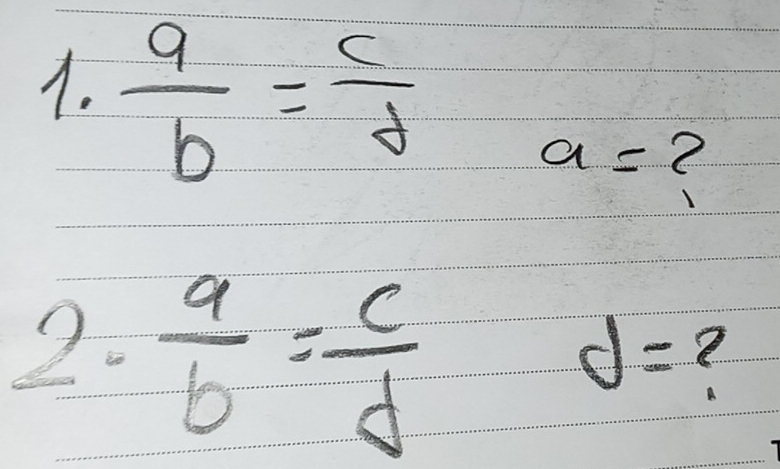 1. a/b = c/d
a = ?
2. a/b = c/d d = ?